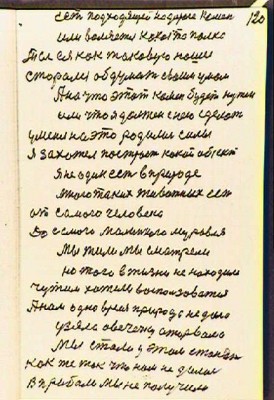 120
есть подходящей на дороге камен
или валяется какой то палка
Тся ся как таковую
старались обдумать своим умом
Я на что этот камен будет нужен
или что я должен с него сделать
у меня на это родились силы
Я захотел построит какой объект
Я не один есть в природе
много таких животных есть
от самого человека
До самого маленького муравья
Мы жили мы сматрели
но того в жизни не находили
чужим хотели воспользоватся
А нам одно время природа не дала
взяла овечку оторвала
Мы стали у этом стонать
как же так что нам не дали
В прибыль мы не получили